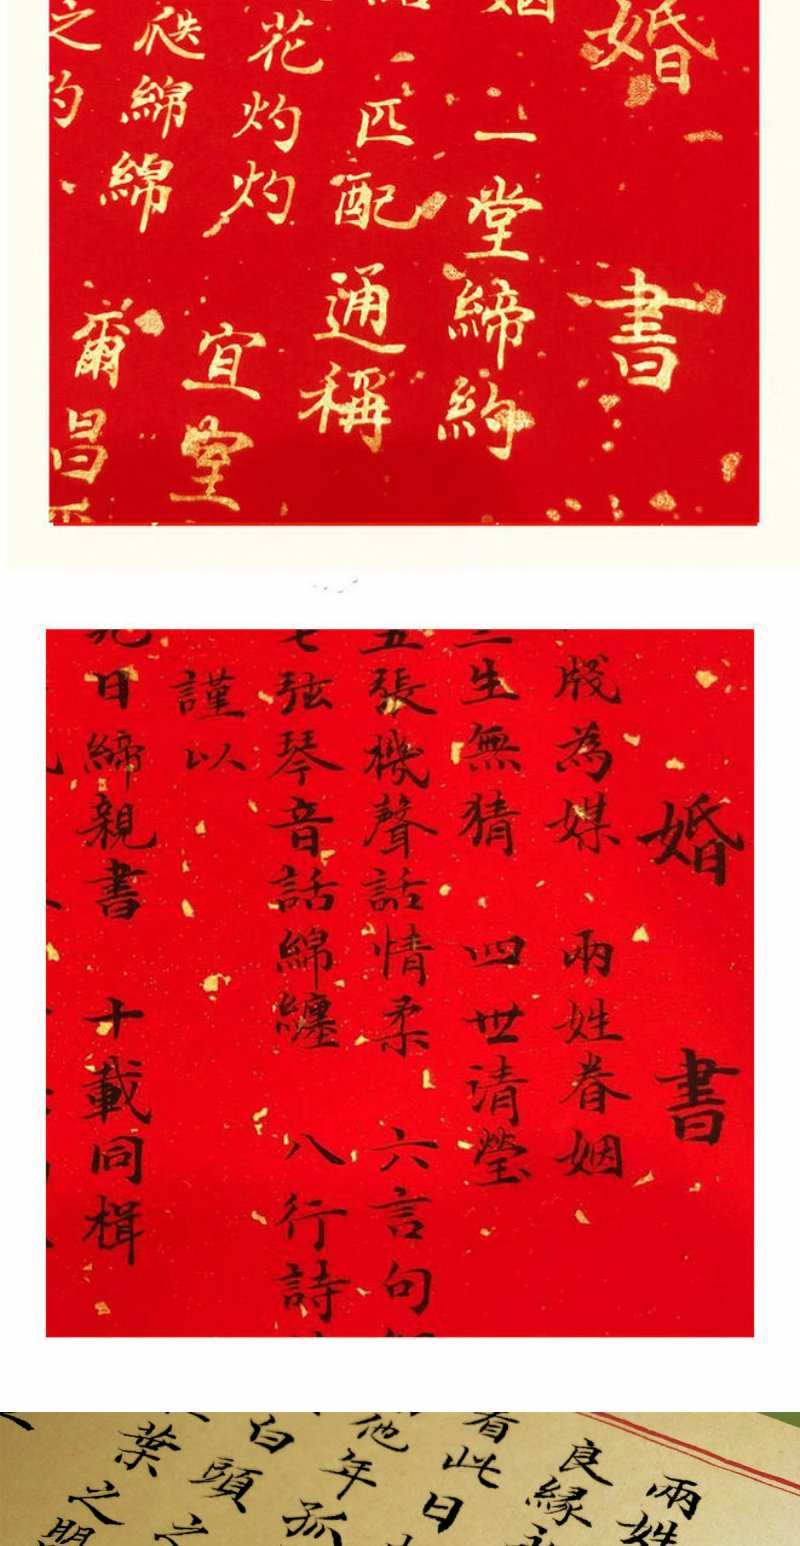 婚 書
一堂締約
匹配 通稱
花灼灼 宜室
瓞綿綿 爾昌
之
婚 書
牋為媒 兩姓眷姻
生無猜 四世清瑩
張機聲話情柔 六言句
弦琴音話綿纏 八行詩
謹以
日締親書 十載同楫
兩姓
良緣
看此日
他年孤
白頭之
葉
之盟